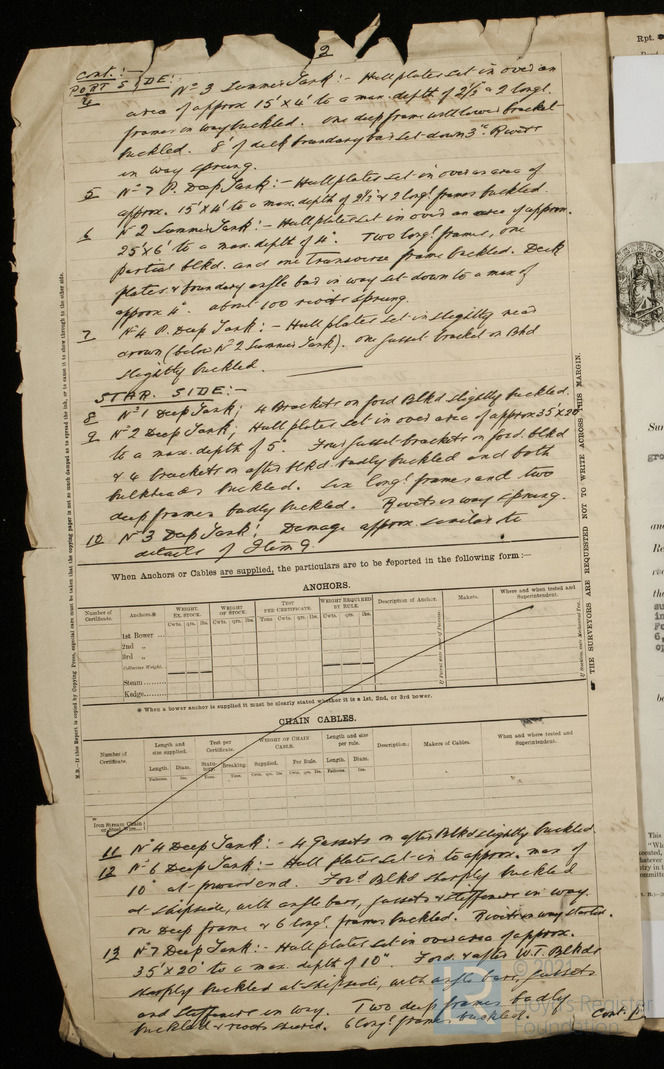 2
Cont:-
PORT SIDE:-
4 No 3 Summer Tank:- Hull plates set in over an
area of approx 15'x4' to a max. depth of 2½" & 2 longl.
frames in way buckled. One deep frame with lower bracket
buckled. 8' of deck boundary bar set-down 3". Rivets
in way sprung.
5 No 7 P. Deep Tank:- Hull plates set-in over an area of
approx. 15'x4' to a max. depth of 2½" & 2 longl. frames buckled.
6 No 2 Summer Tank:- Hull plates set in over an area of approx.
25'x6' to a max. depth of 4". Two longl. frames, one
partial blkd. and one transverse frame buckled. Deck
plates & boundary angle bar in way set-down to a max of
approx 4". About 100 rivets sprung.
7 No 4 P. Deep Tank:- Hull plates set-in slightly near
crown (below No 2 Summer Tank). One gusset bracket on Bhd
slightly buckled.
STAR. SIDE:-
8 No 1 Deep Tank; 4 Brackets on ford Blkd slightly buckled.
9 No 2 Deep Tank; Hull plates set in over area of approx 35'x20'
to a max. depth of 5". Four gusset-brackets on ford. blkd
& 4 brackets on after blkd. badly buckled and both
bulkheads buckled. Six longl. frames and two
deep frames badly buckled. Rivets in way sprung.
10 No 3 Deep Tank; Damage approx. similar to
details of Item 9
When Anchors or Cables are supplied, the particulars are to be reported in the following form:—
ANCHORS.
Number of Certificate. Anchors.* WEIGHT. EX. STOCK. WEIGHT OF STOCK. TEST PER CERTIFICATE. WEIGHT REQUIRED BY RULE. Description of Anchor. Makers. Where and when tested and Superintendent.
Cwts. qrs. lbs. Cwts. qrs. lbs. Tons. Cwts. qrs. lbs. Cwts. qrs. lbs.
1st Bower
2nd „
3rd „
Collective Weight.
Steam
Kedge
* When a bower anchor is supplied it must be clearly stated whether it is a 1st, 2nd, or 3rd bower.
CHAIN CABLES.
Number of Certificate. Length and size supplied. Test per Certificate. WEIGHT OF CHAIN CABLE. Length and size per rule. Description. Makers of Cables. When and where tested and Superintendent.
Length. Diam. Statutory. Breaking. Supplied. Per Rule. Length. Diam.
Fathoms. Ins. Tons. Tons. Cwts. qrs. lbs. Cwts. qrs. lbs. Fathoms. Ins.
Iron Stream Chain
or Steel Wire
11 No 4 Deep Tank:- 4 Gussets on after Blkd slightly buckled.
12 No 6 Deep Tank:- Hull plates set-in to approx. max of
10" at forward end. Ford Blkd sharply buckled
at shipside, with angle bars, gussets & stiffeners in way.
One deep frame & 6 longl. frames buckled. Rivets in way started.
13 No 7 Deep Tank:- Hull plates set in over area of approx.
35'x20' to a max. depth of 10". Ford. & after W.T. Blkds
sharply buckled at shipside, with angle bars, gussets
and stiffeners in way. Two deep frames badly
buckled & rivets sheared. 6 longl. frames buckled.
Cont.
THE SURVEYORS ARE REQUESTED NOT TO WRITE ACROSS THIS MARGIN.
N.B.—If this Report is copied by Copying Press, especial care must be taken that the copying paper is not so much damped as to spread the ink, or to cause it to show through to the other side.
Rpt.
© 2021
Lloyd's Register
Foundation